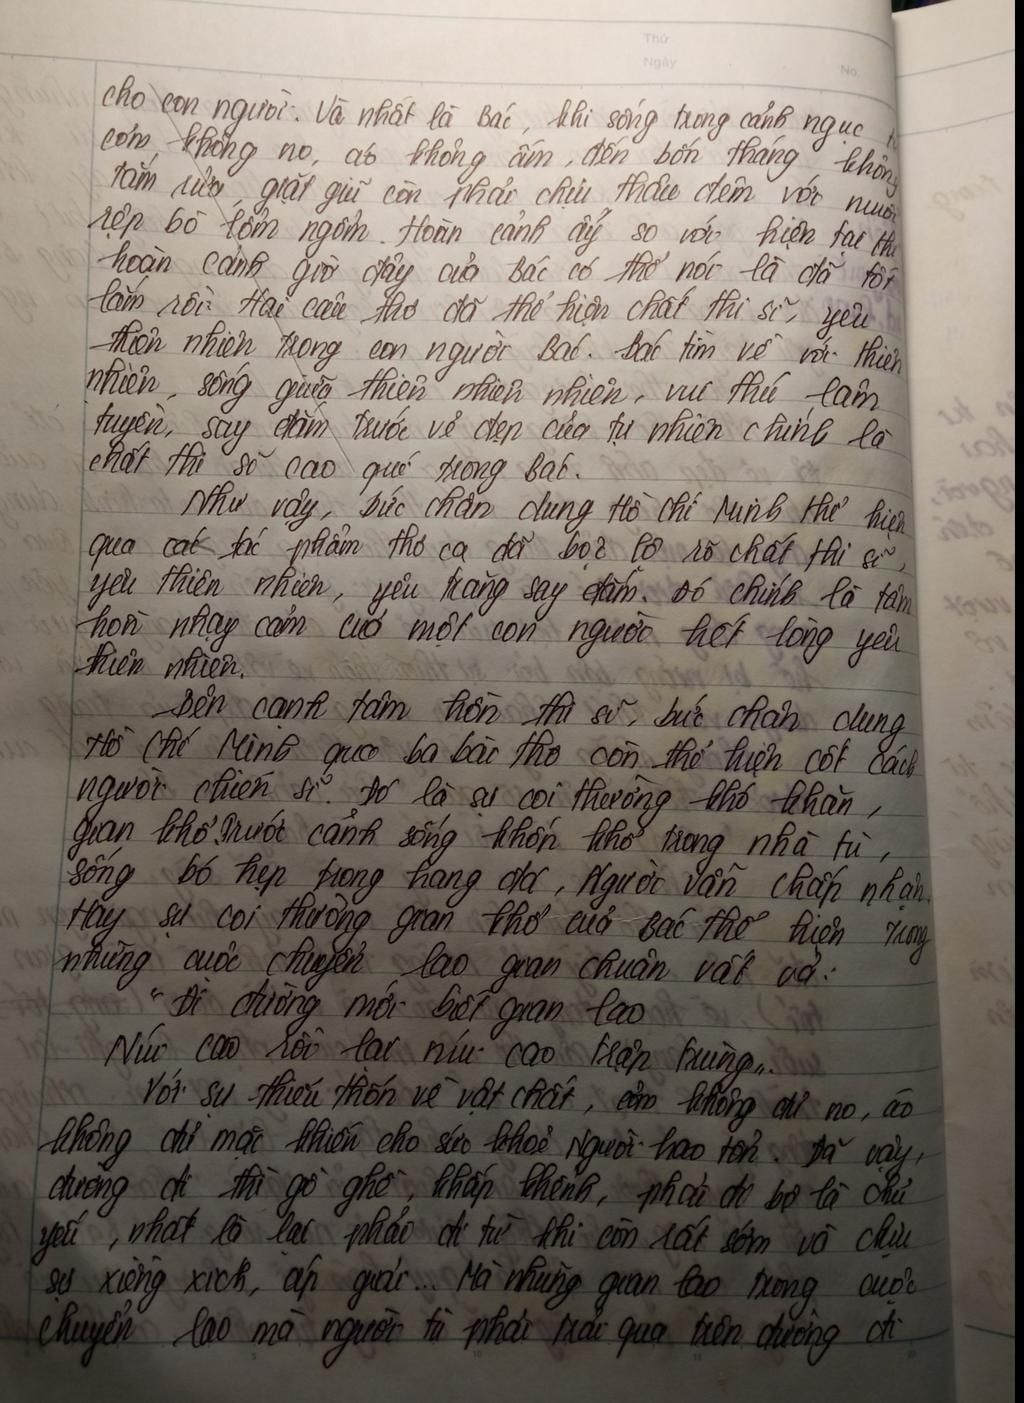 Thứ
Ngày
No.
cho con người. Và nhất là Bác, khi sống trong cảnh ngục
cơm, không no, áo không ấm, đến bốn tháng không
tắm rửa, giặt giũ còn phải chịu thâu đêm với muỗi
rệp bò lổm ngổm. Hoàn cảnh ấy so với hiện tại thì
hoàn cảnh giờ đây của Bác có thể nói là đã tốt
lắm rồi. Hai câu thơ đã thể hiện chất thi sĩ, yêu
thiên nhiên trong con người Bác. Bác tìm về với thiên
nhiên, sống giữa thiên nhiên nhiên, vui thú lâm
tuyền, say đắm trước vẻ đẹp của tự nhiên chính là
chất thi sĩ cao quý trong Bác.
Như vậy, bức chân dung Hồ Chí Minh thể hiện
qua các tác phẩm thơ ca đã bộc lộ rõ chất thi sĩ,
yêu thiên nhiên, yêu trăng say đắm. Đó chính là tâm
hồn nhạy cảm của một con người hết lòng yêu
thiên nhiên.
Bên cạnh tâm hồn thi sĩ, bức chân dung
Hồ Chí Minh qua ba bài thơ còn thể hiện cốt cách
người chiến sĩ. Đó là sự coi thường khó khăn,
gian khổ. Trước cảnh sống khốn khổ trong nhà tù,
sống bó hẹp trong hang đá, Người vẫn chấp nhận.
Hay sự coi thường gian khổ của Bác thể hiện trong
những cuộc chuyển lao gian chuân vất vả:
"Đi đường mới biết gian lao
Núi cao rồi lại núi cao trập trùng".
Với sự thiếu thốn về vật chất, cơm không đủ no, áo
không đủ mặc khiến cho sức khoẻ Người hao tổn. Đã vậy,
đường đi thì gồ ghề, khấp khểnh, phải đi bộ là chủ
yếu, nhất là lại phải đi từ khi còn rất sớm và chịu
sự xiềng xích, áp giải... Mà những gian lao trong cuộc
chuyển lao mà người tù phải trải qua trên đường đi